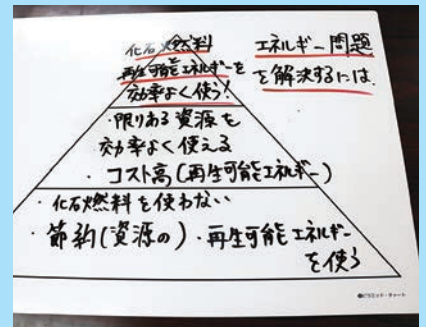 化石燃料
再生可能エネルギーを
効率よく使う!
エネルギー問題
を解決するには
・限りある資源を
効率よく使える
・コスト高(再生可能エネルギー)
・化石燃料を使わない
・節約(資源の)・再生可能エネルギー
を使う
ピラミッド・チャート